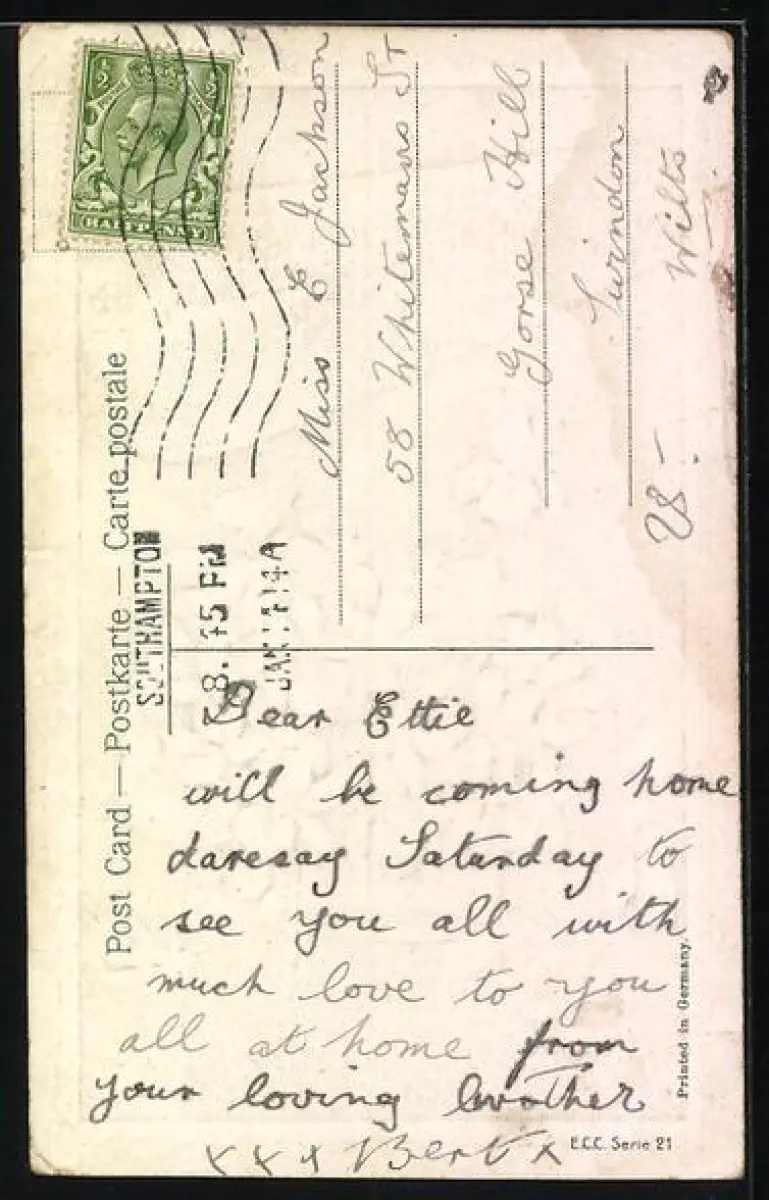 Post Card — Postkarte — Carte postale
HALFPENNY
SOUTHAMPTON
8.45 PM
JAN
14
Miss E Jackson
58 Whitemans St
Gorse Hill
Swindon
Wilts
Dear Ettie
will be coming home
daresay Saturday to
see you all with
much love to you
all at home from
your loving brother
x x x Bert x
Printed in Germany.
E.C.C. Serie 21